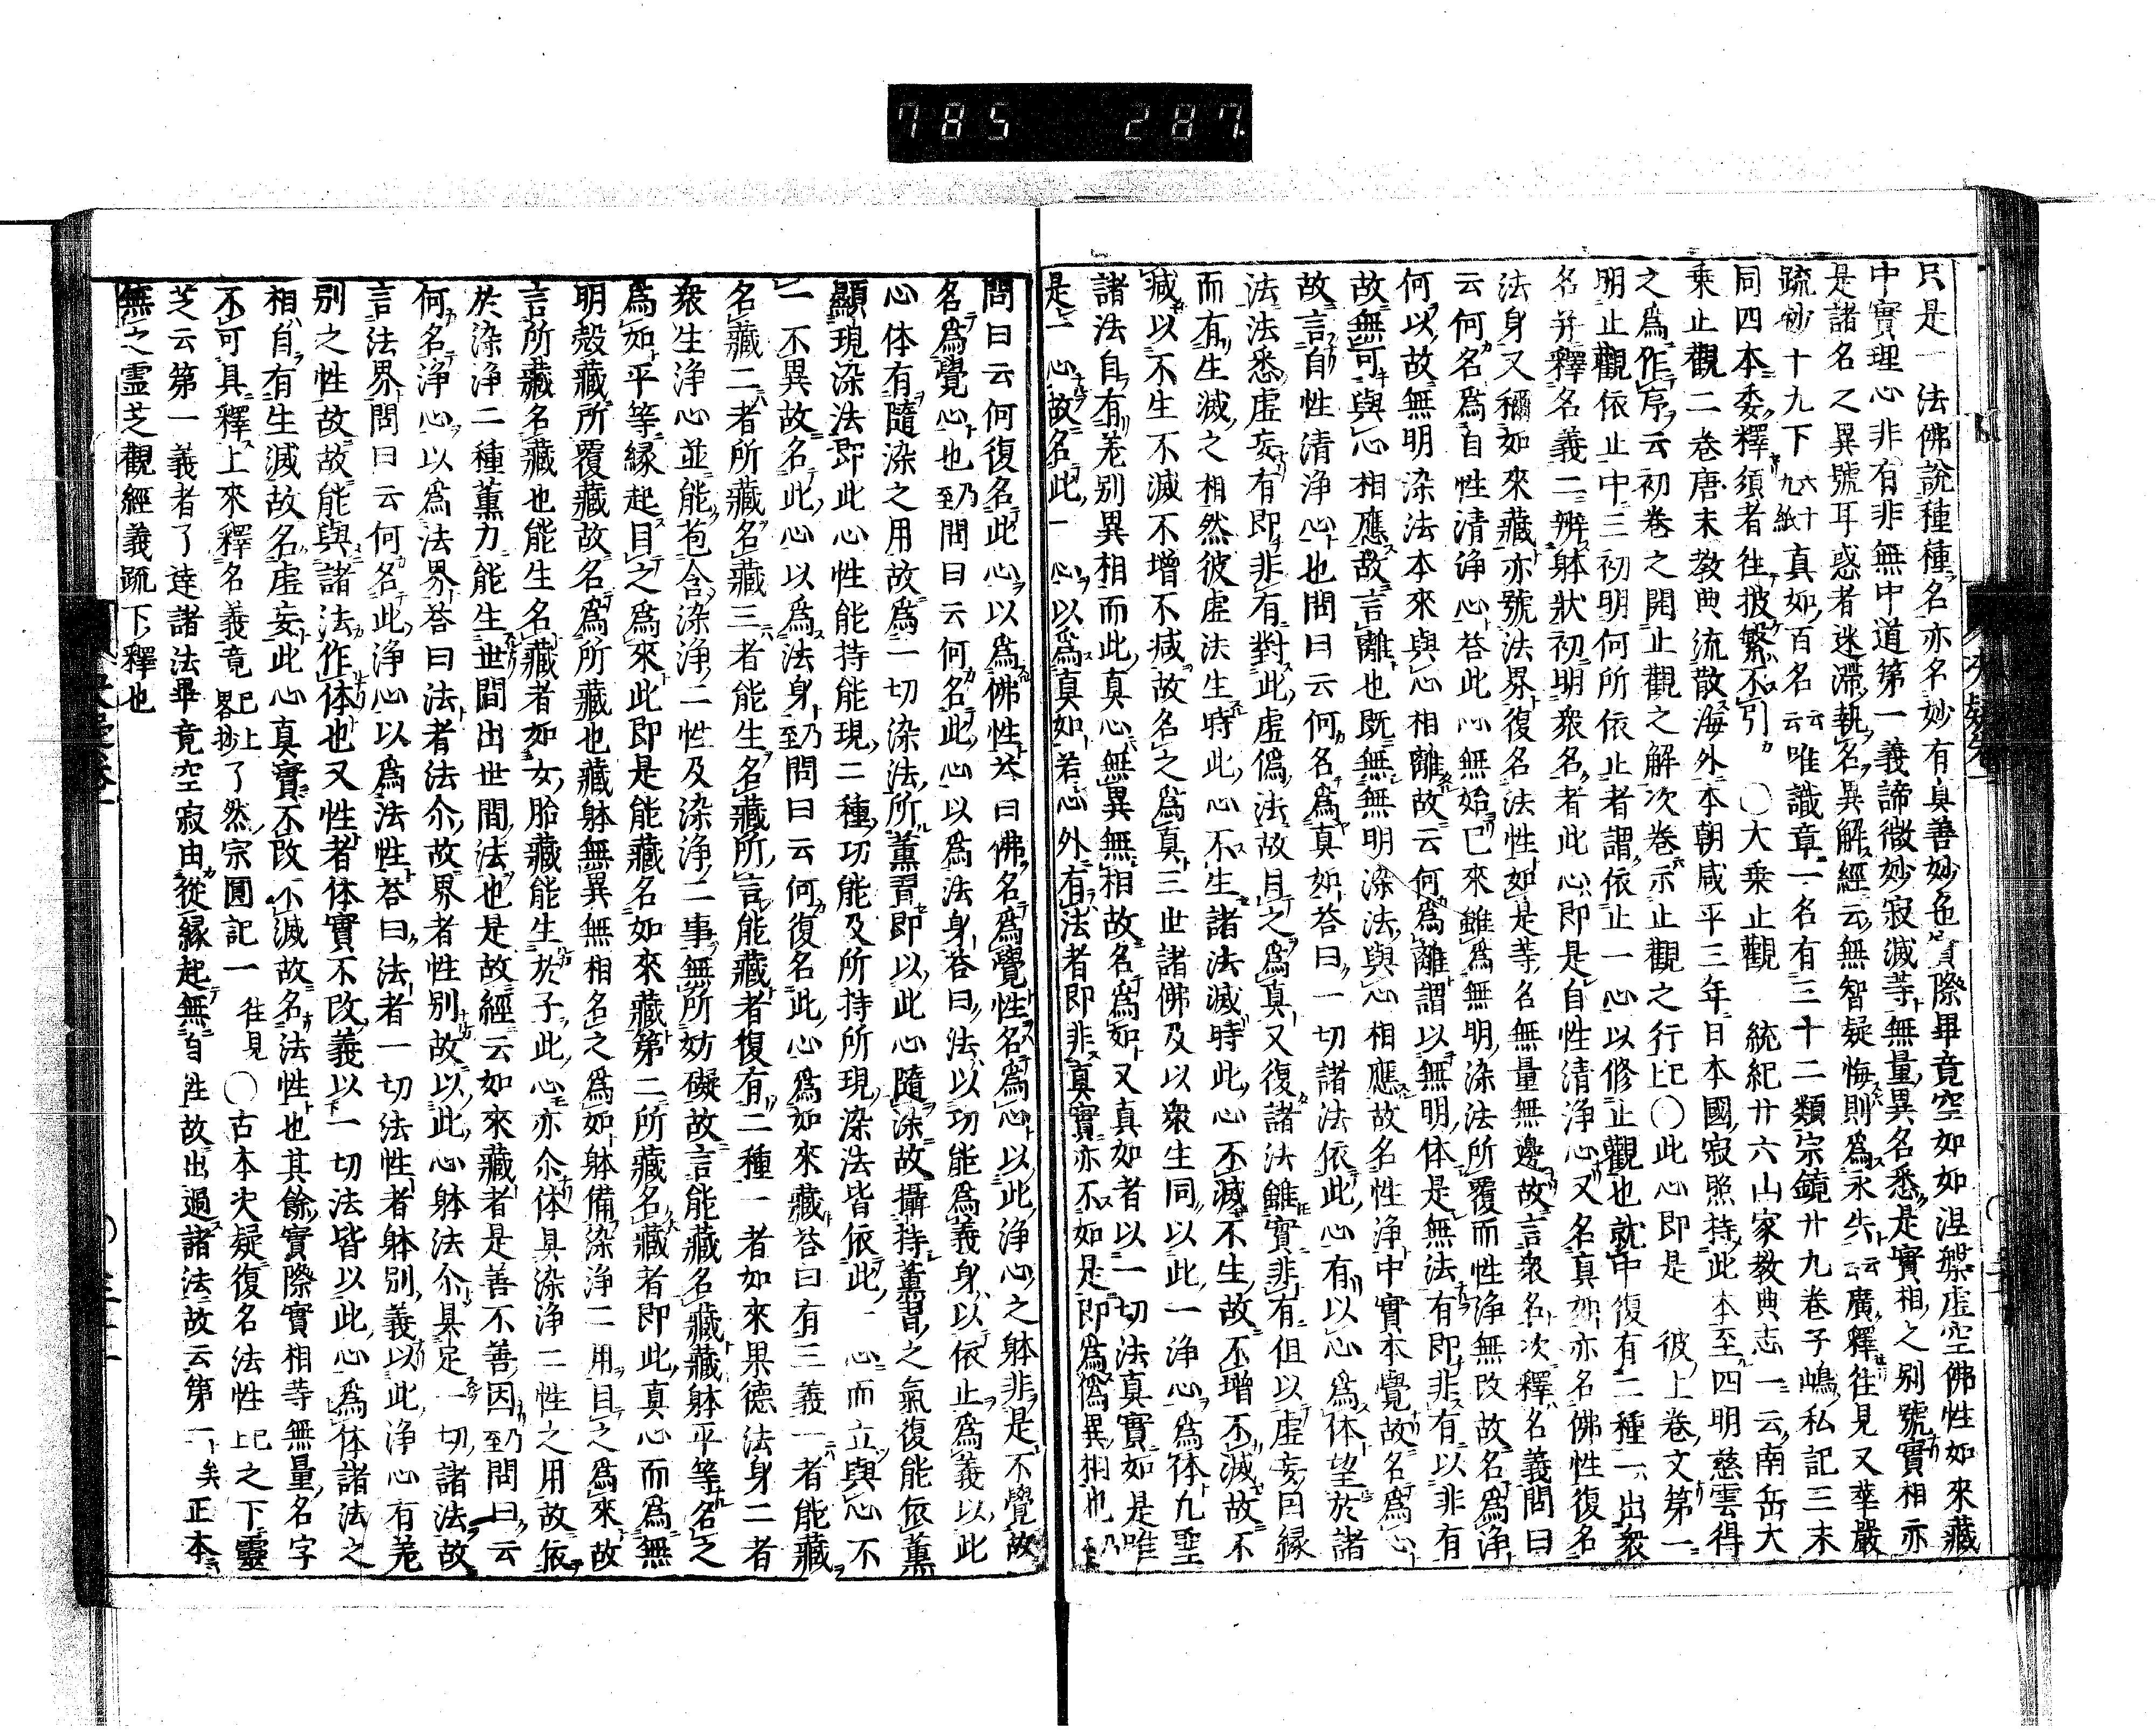 785 287
只是一法佛說種種名亦名妙有真善妙色實際畢竟空如如涅槃虛空佛性如來藏
中實理心非有非無中道第一義諦微妙寂滅等無量異名悉是實相之別號實相亦
是諸名之異號耳惑者迷滯執名異解經云無智疑悔則爲永失云云廣釋往見又華嚴
疏鈔十九下六十九紙真如百名云云唯識章一名有三十二類宗鏡廿九卷子嶋私記三末
同四本委釋須者往披繁不引○大乘止觀統紀廿六山家教典志一云南岳大
乘止觀二卷唐末教典流散海外本朝咸平三年日本國寂照持此本至四明慈雲得
之爲作序云初卷之開止觀之解次卷示止觀之行已上○此心即是彼上卷文第一
明止觀依止中三初明何所依止者謂依止一心以修止觀也就中復有二種一出衆
名并釋名義二辨躰狀初明衆名者此心即是自性清淨心又名真如亦名佛性復名
法身又稱如來藏亦號法界復名法性如是等名無量無邊故言衆名次釋名義問曰
云何名爲自性清淨心荅此心無始已來雖爲無明染法所覆而性淨無改故名爲淨
何以故無明染法本來與心相離故云何爲離謂以無明体是無法有即非有以非有
故無可與心相應故言離也既無無明染法與心相應故名性淨中實本覺故名爲心
故言自性清淨心也問曰云何名爲真如荅曰一切諸法依此心有以心爲体望於諸
法法悉虛妄有即非有對此虛僞法故目之爲真又復諸法雖實非有但以虛妄因緣
而有生滅之相然彼虛法生時此心不生諸法滅時此心不滅不生故不增不滅故不
減以不生不滅不增不減故名之爲真三世諸佛及以衆生同以此一淨心爲体凢聖
諸法自有差别異相而此真心無異無相故名爲如又真如者以一切法真實如是唯
是一心故名此一心以爲真如若心外有法者即非真實亦不如是即爲僞異相也乃至
問曰云何復名此心以爲佛性荅曰佛名爲覺性名爲心以此淨心之躰非是不覺故
名爲覺心也乃至問曰云何名此心以爲法身荅曰法以功能爲義身以依止爲義以此
心体有隨染之用故爲一切染法所薰習即以此心隨染故攝持薰習之氣復能依薰
顯現染法即此心性能持能現二種功能及所持所現染法皆依此一心而立與心不
一不異故名此心以爲法身乃至問曰云何復名此心爲如來藏荅曰有三義一者能藏
名藏二者所藏名藏三者能生名藏所言能藏者復有二種一者如來果德法身二者
衆生淨心並能苞含染淨二性及染淨二事無所妨礙故言能藏名藏藏躰平等名之
爲如平等緣起目之爲來此即是能藏名如來藏第二所藏名藏者即此真心而爲無
明殼藏所覆藏故名爲所藏也藏躰無異無相名之爲如躰備染淨二用目之爲來故
言所藏名藏也能生名藏者如女胎藏能生於子此心亦尒体具染淨二性之用故依
於染淨二種薰力能生世間出世間法也是故經云如來藏者是善不善因乃至問曰云
何名淨心以爲法界荅曰法者法尒故界者性别故以此心躰法尒具足一切諸法故
言法界問曰云何名此淨心以爲法性荅曰法者一切法性者躰別義以此淨心有差
別之性故故能與諸法作体也又性者体實不改義以一切法皆以此心爲体諸法之
相自有生滅故名虛妄此心真實不改不滅故名法性也其餘實際實相等無量名字
不可具釋上來釋名義竟已上畧抄了然宗圓記一往見○古本次疑復名法性已上之下靈
芝云第一義者了達諸法畢竟空寂由從緣起無自性故出過諸法故云第一矣正本
無之霊芝觀經義䟽下釋也